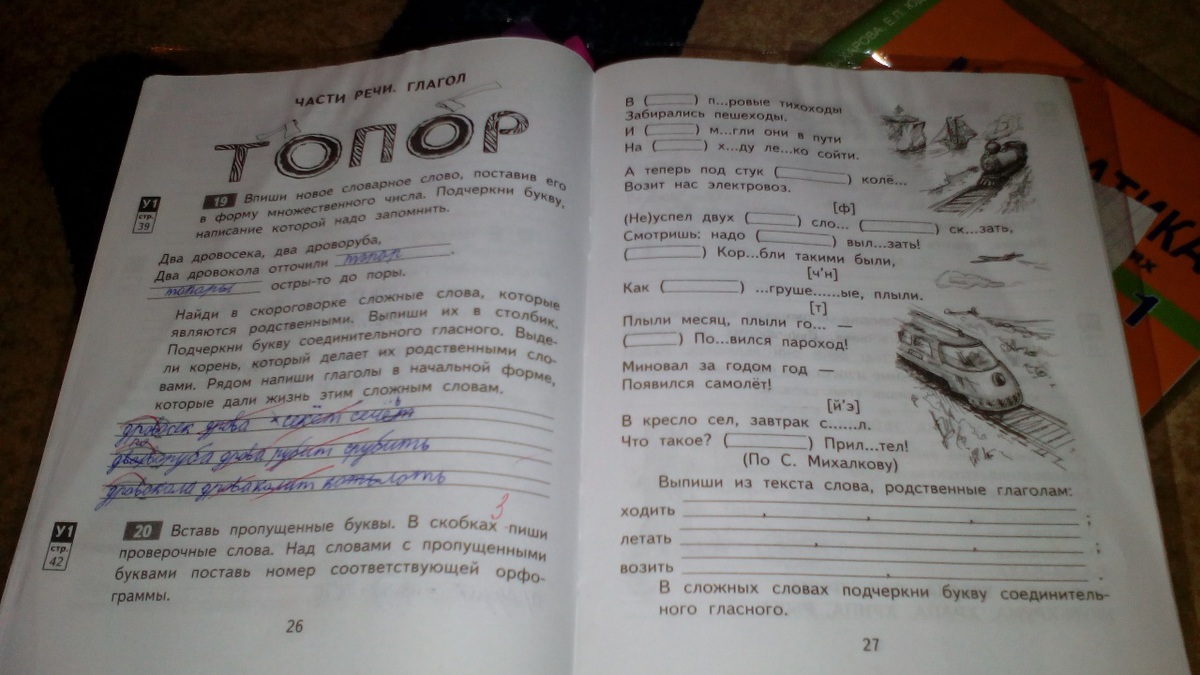 ЧАСТИ РЕЧИ. ГЛАГОЛ
ТОПОР
У1
стр.
39
19 Впиши новое словарное слово, поставив его
в форму множественного числа. Подчеркни букву,
написание которой надо запомнить.
Два дровосека, два дроворуба,
Два дровокола отточили топор.
топоры остры-то до поры.
Найди в скороговорке сложные слова, которые
являются родственными. Выпиши их в столбик.
Подчеркни букву соединительного гласного. Выде-
ли корень, который делает их родственными сло-
вами. Рядом напиши глаголы в начальной форме,
которые дали жизнь этим сложным словам.
дровосек дрова
дрова рубит срубить
дровокола
3
У1
стр.
42
20 Вставь пропущенные буквы. В скобках пиши
проверочные слова. Над словами с пропущенными
буквами поставь номер соответствующей орфо-
граммы.
26
В ( ) п...ровые тихоходы
Забирались пешеходы.
И ( ) м...гли они в пути
На ( ) х...ду ле...ко сойти.
А теперь под стук ( ) колё...
Возит нас электровоз.
[ф]
(Не)успел двух ( ) сло... ( ) ск...зать,
Смотришь: надо ( ) выл...зать!
( ) Кор...бли такими были,
[ч'н]
Как ( ) ...груше......ые, плыли.
[т]
Плыли месяц, плыли го... —
( ) По...вился пароход!
Миновал за годом год —
Появился самолёт!
[й'э]
В кресло сел, завтрак с......л.
Что такое? ( ) Прил...тел!
(По С. Михалкову)
Выпиши из текста слова, родственные глаголам:
ходить , , ;
летать , , ;
возить , .
В сложных словах подчеркни букву соединитель-
ного гласного.
27
1